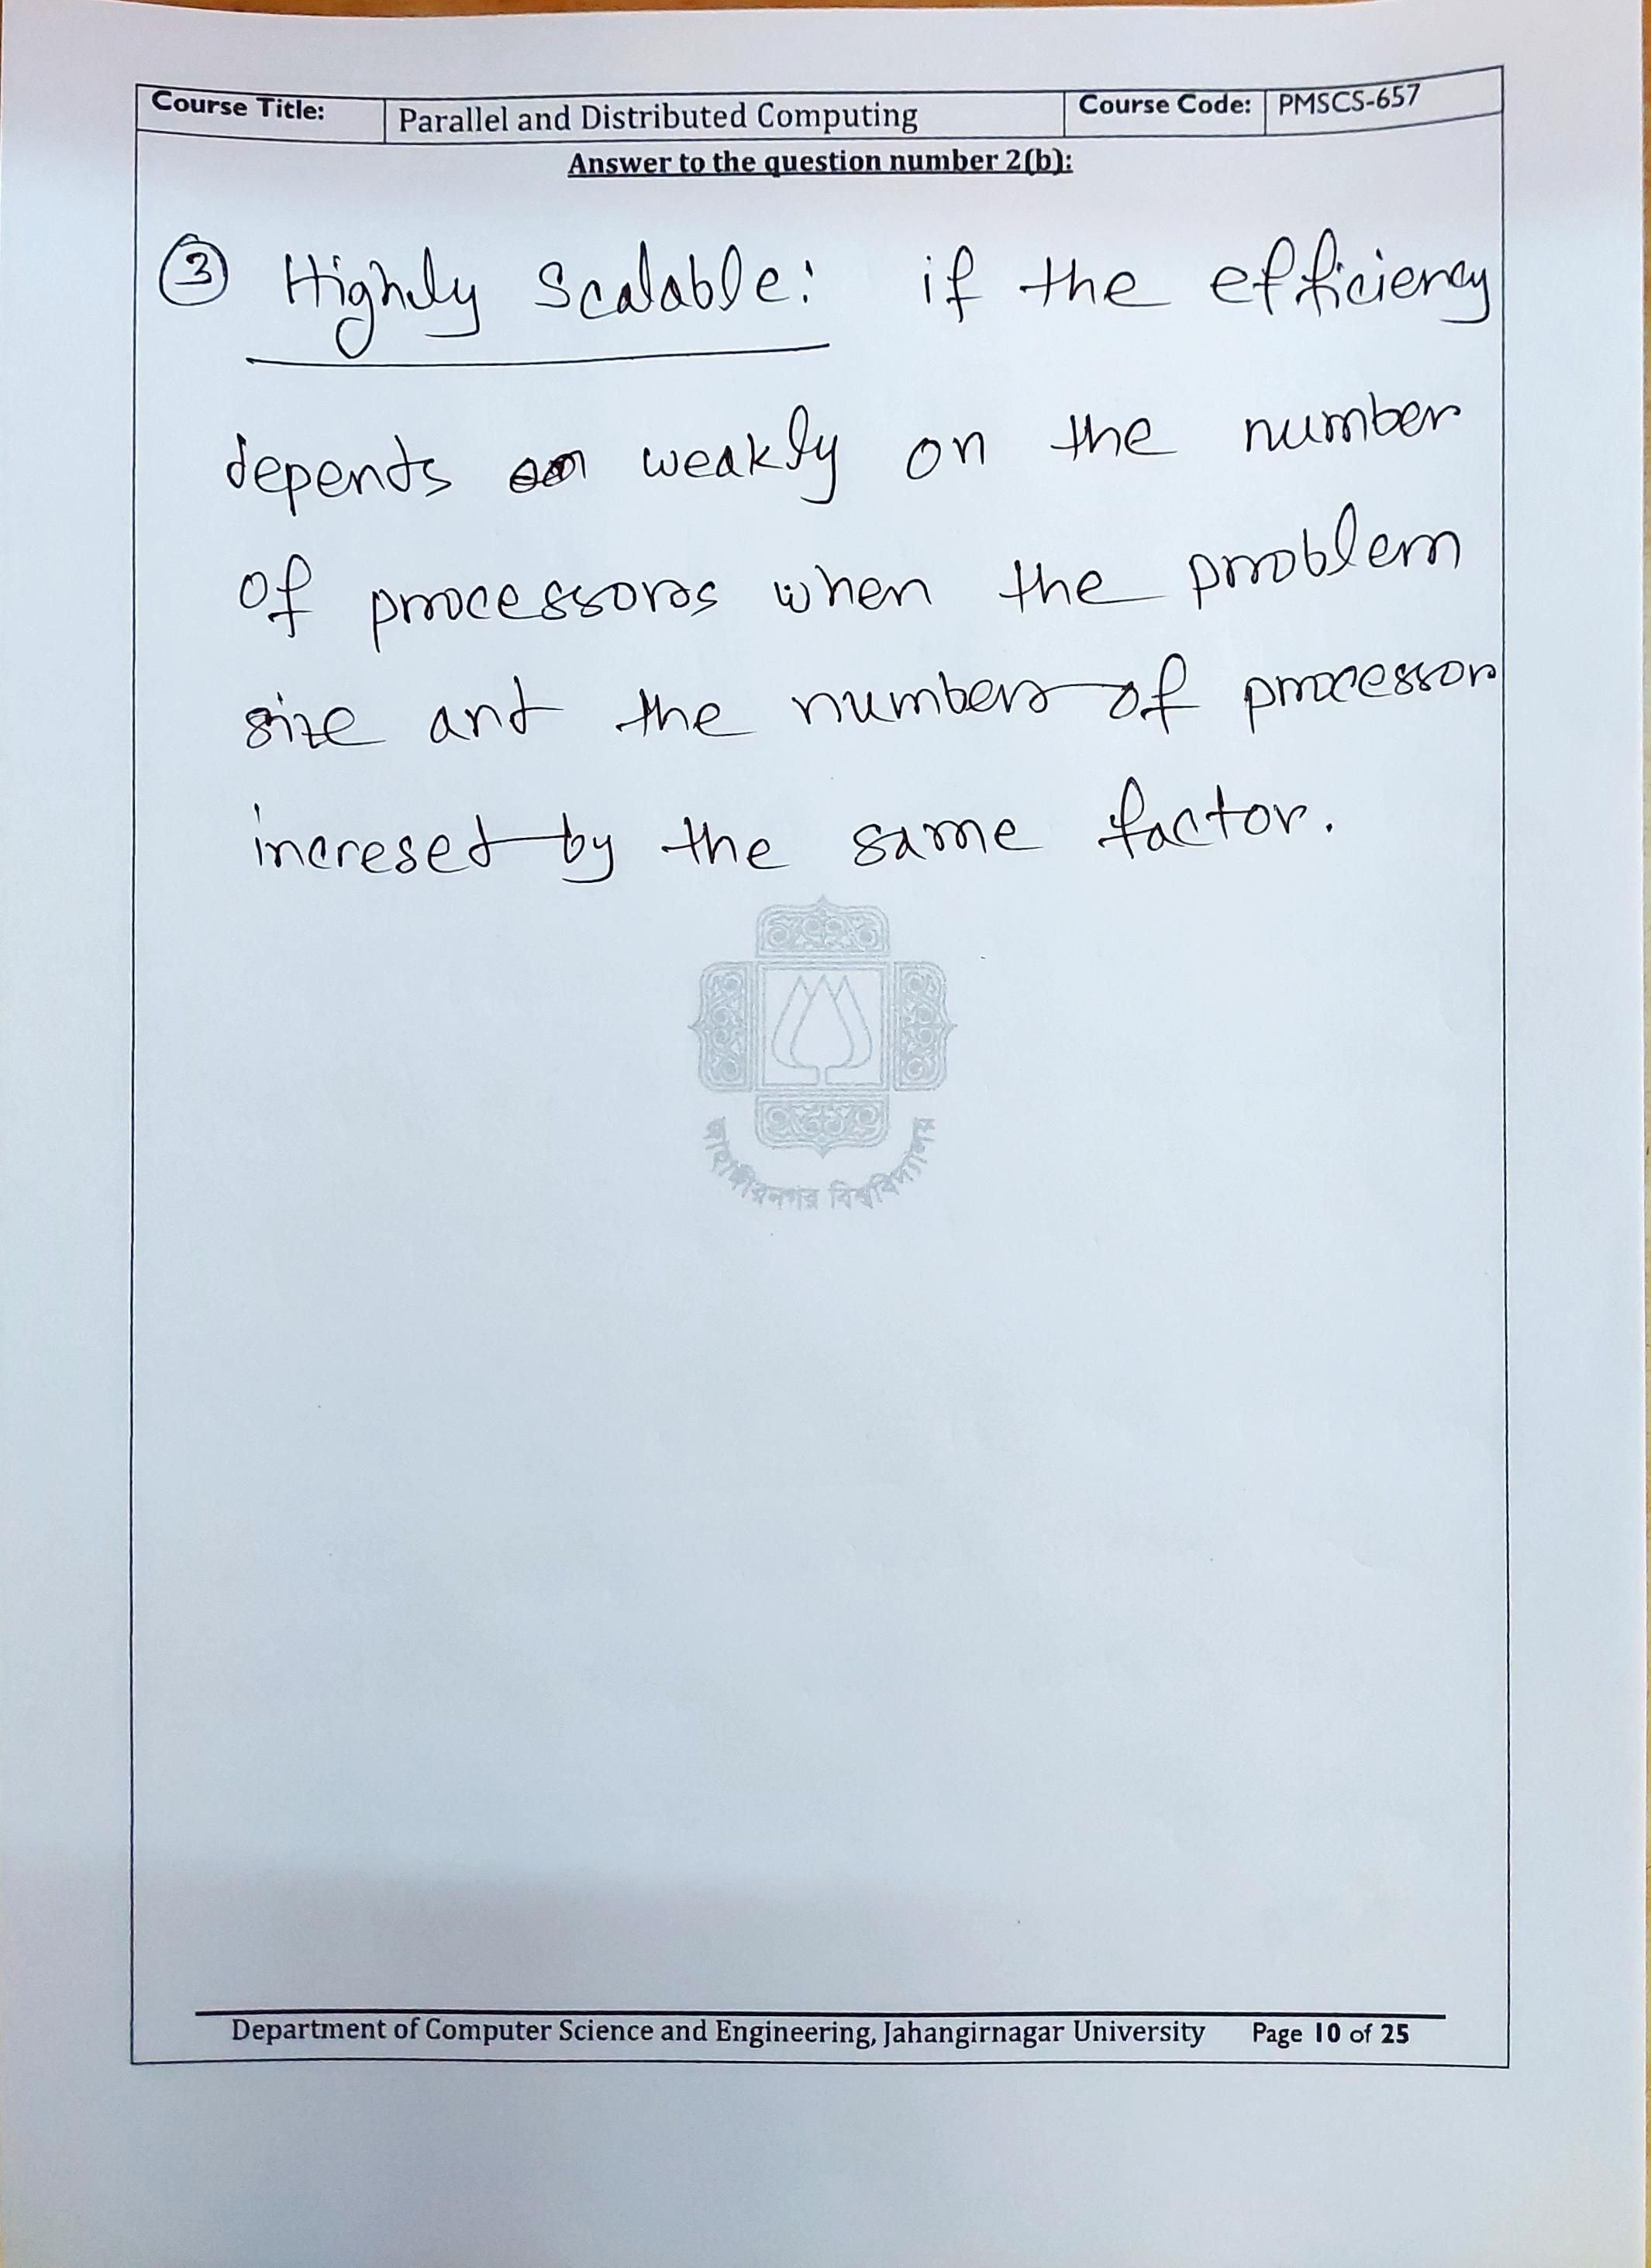 Course Title: Parallel and Distributed Computing Course Code: PMSCS-657
Answer to the question number 2(b):
3 Highly Scalable: if the efficiency
depends weakly on the number
of processors when the problem
size and the number of processor
incresed by the same factor.
জাহাঙ্গীরনগর বিশ্ববিদ্যালয়
Department of Computer Science and Engineering, Jahangirnagar University Page 10 of 25